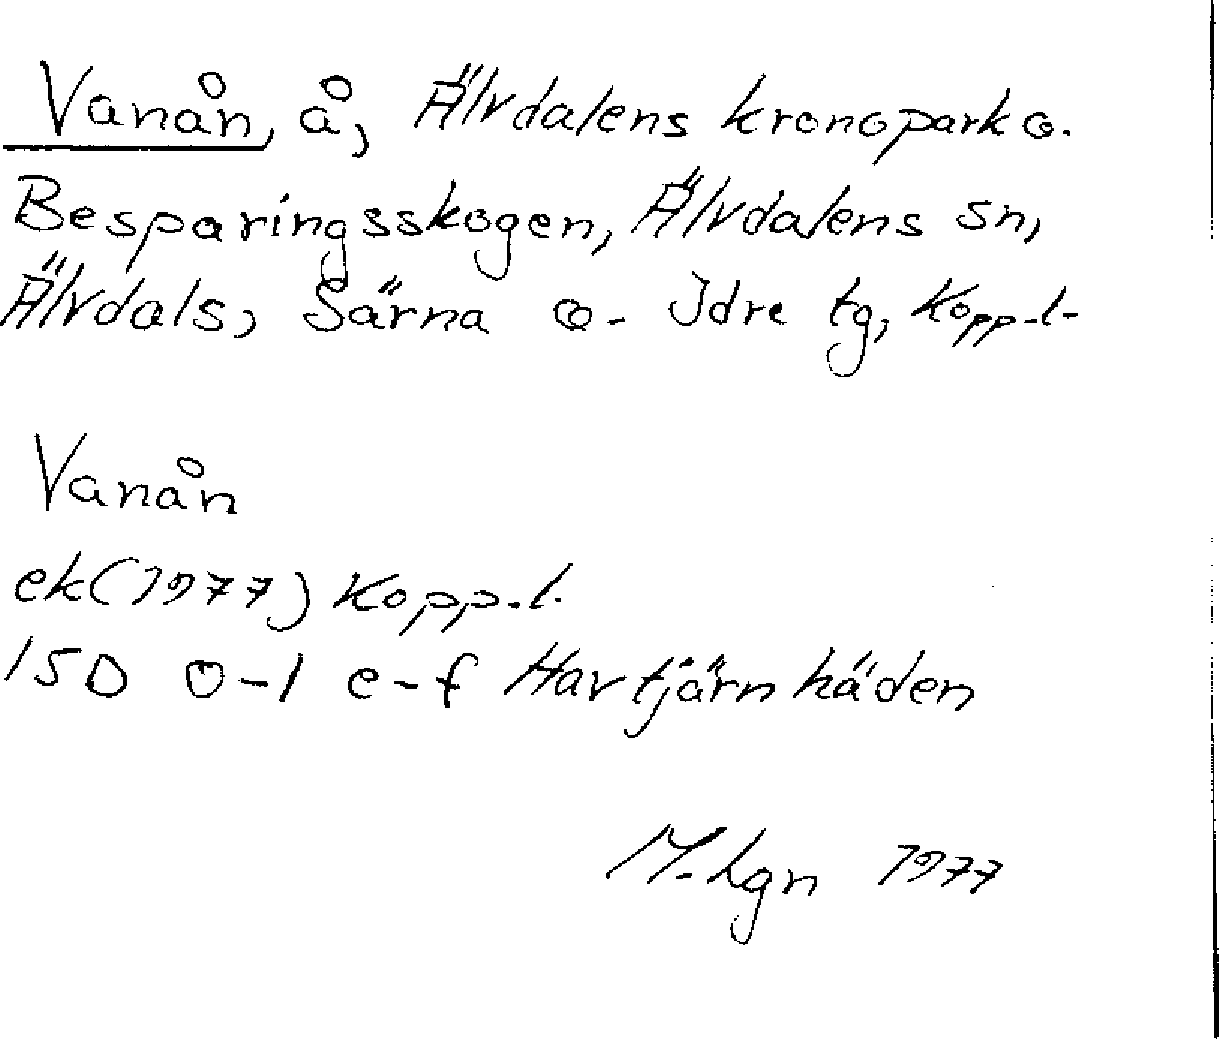 Vanån, å, Älvdalens kronopark o.
Besparingsskogen, Älvdalens sn,
Älvdals, Särna o. Idre tg, Kopp.l.
Vanån
ek(1977) Kopp.l.
15D 0-1 e-f Havtjärnhäden
M.Lgn 1977